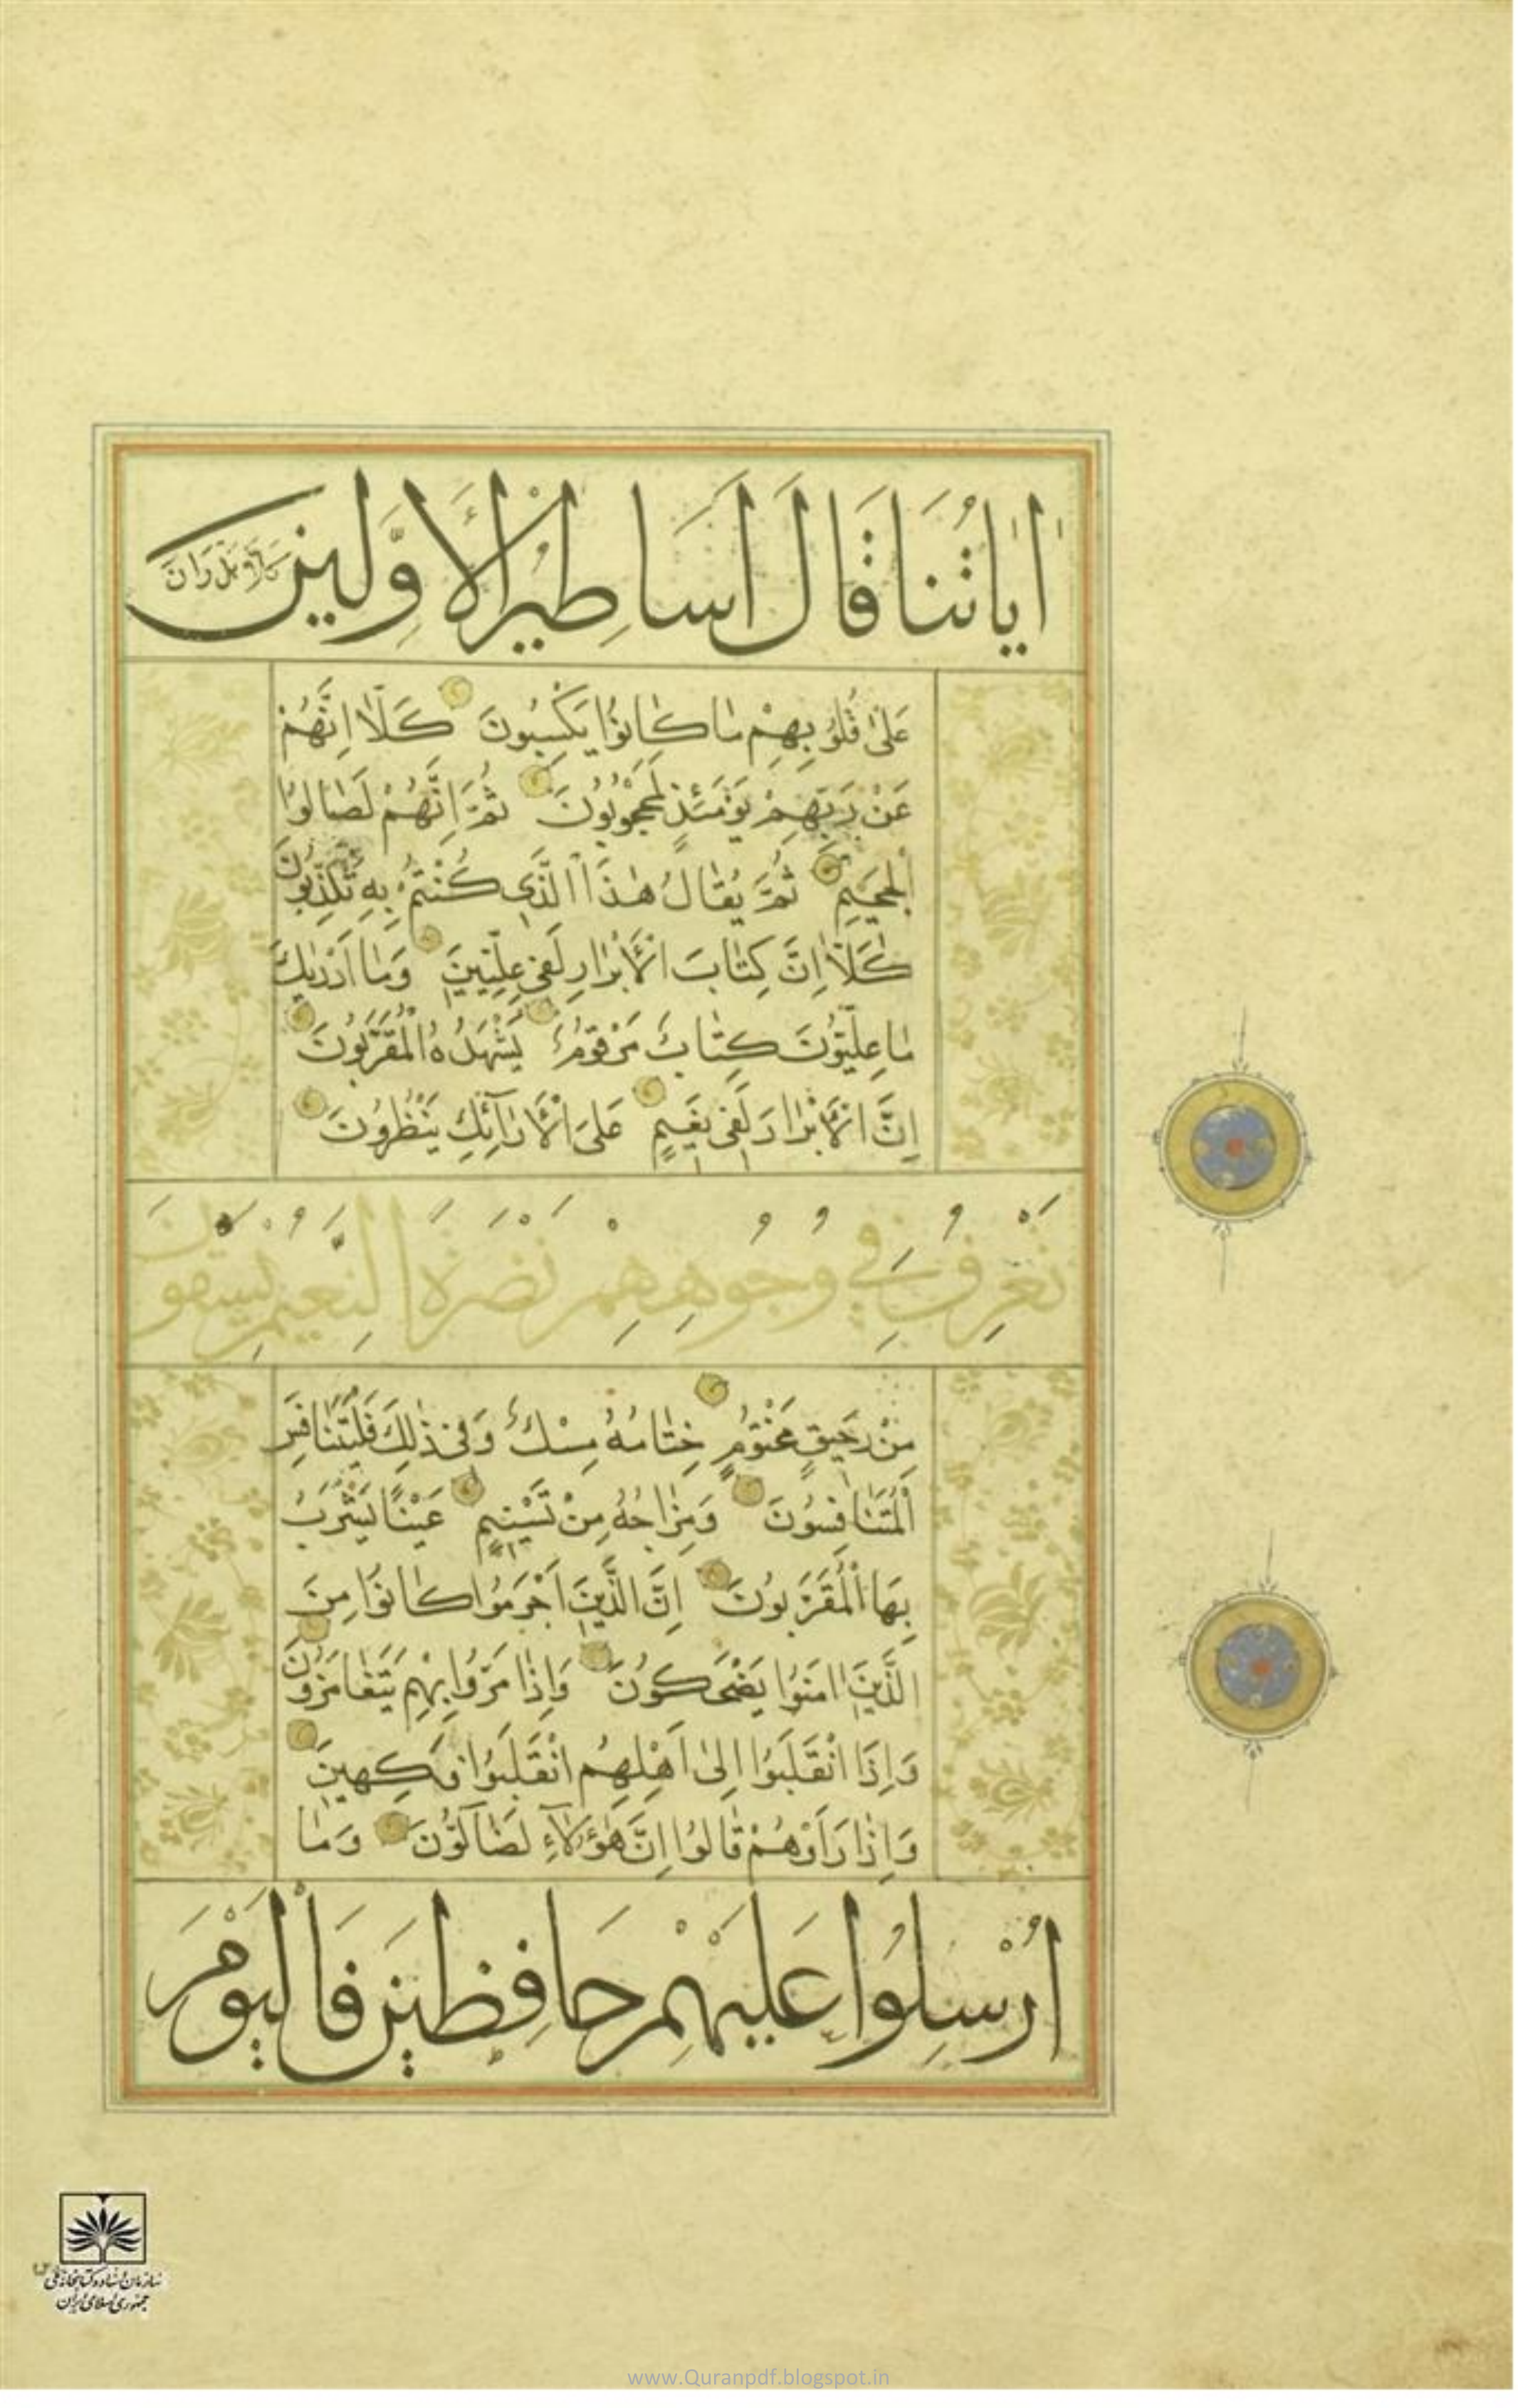 اٰيٰاتُنَا قَالَ اَسَاطِيرُ الْاَوَّلِينَ كَلَّا بَلْ رَانَ
عَلٰى قُلُوبِهِمْ مٰا كٰانُوا يَكْسِبُونَ كَلّٰا اِنَّهُمْ
عَنْ رَبِّهِمْ يَوْمَئِذٍ لَمَحْجُوبُونَ ثُمَّ اِنَّهُمْ لَصٰالُوا
الْجَحِيمِ ثُمَّ يُقٰالُ هٰذَا الَّذِى كُنْتُمْ بِهِ تُكَذِّبُونَ
كَلّٰا اِنَّ كِتٰابَ الْاَبْرٰارِ لَفِى عِلِّيِّينَ وَمٰا اَدْرٰيكَ
مٰا عِلِّيُّونَ كِتٰابٌ مَرْقُومٌ يَشْهَدُهُ الْمُقَرَّبُونَ
اِنَّ الْاَبْرٰارَ لَفِى نَعِيمٍ عَلَى الْاَرٰآئِكِ يَنْظُرُونَ
تَعْرِفُ فِي وُجُوهِهِمْ نَضْرَةَ النَّعِيمِ يُسْقَوْنَ
مِنْ رَحِيقٍ مَخْتُومٍ خِتٰامُهُ مِسْكٌ وَفِى ذٰلِكَ فَلْيَتَنٰافَسِ
الْمُتَنٰافِسُونَ وَمِزٰاجُهُ مِنْ تَسْنِيمٍ عَيْنًا يَشْرَبُ
بِهَا الْمُقَرَّبُونَ اِنَّ الَّذِينَ اَجْرَمُوا كٰانُوا مِنَ
الَّذِينَ اٰمَنُوا يَضْحَكُونَ وَاِذٰا مَرُّوا بِهِمْ يَتَغٰامَزُونَ
وَاِذَا انْقَلَبُوا اِلٰى اَهْلِهِمُ انْقَلَبُوا فَكِهِينَ
وَاِذٰا رَاَوْهُمْ قٰالُوا اِنَّ هٰؤُلٰاءِ لَضٰآلُّونَ وَمٰا
اُرْسِلُوا عَلَيْهِمْ حَافِظِينَ فَالْيَوْمَ
سازمان اسناد و کتابخانه ملی
جمهوری اسلامی ایران
www.Quranpdf.blogspot.in